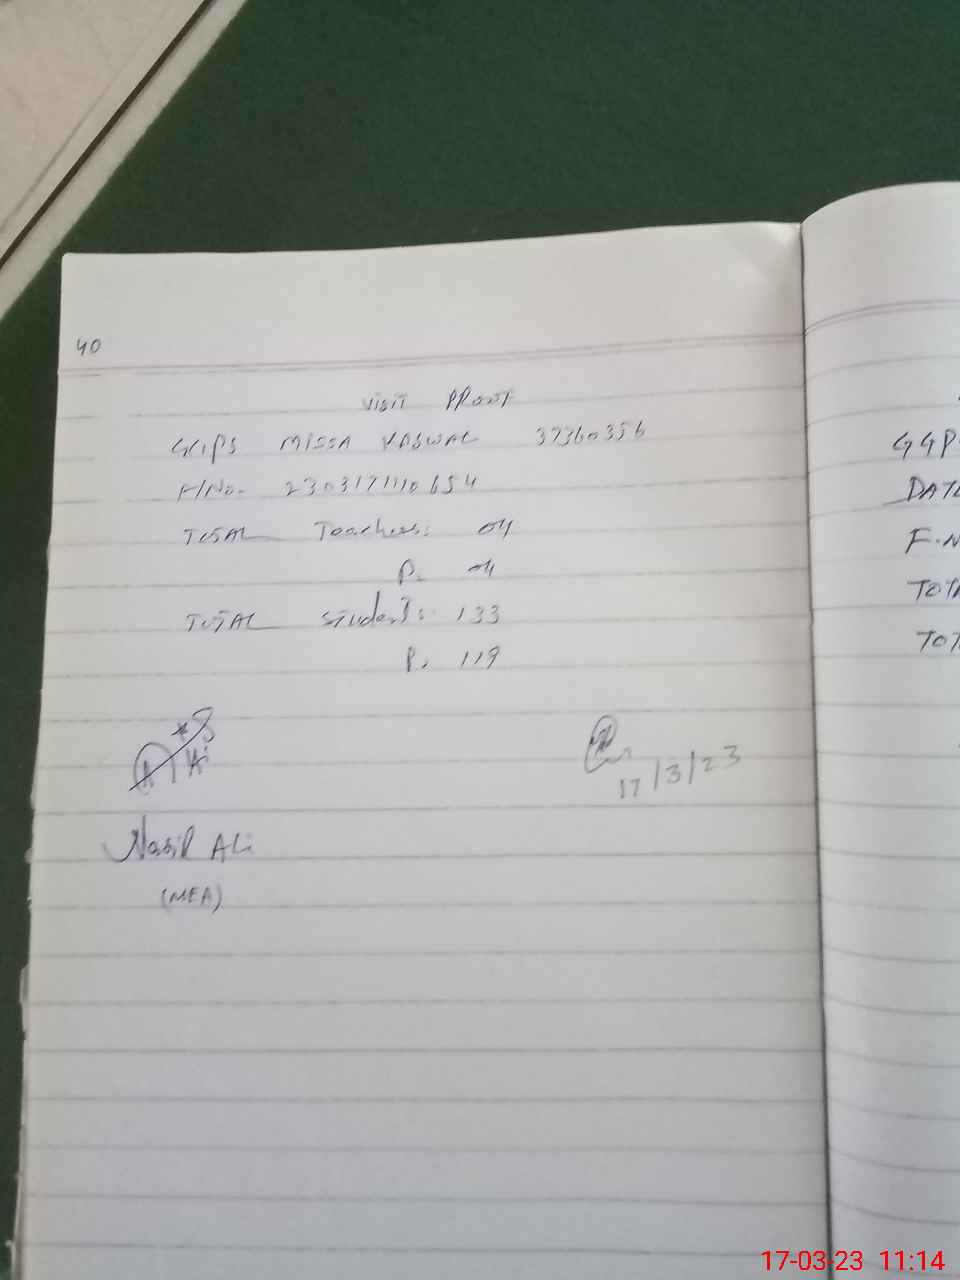 40
VISIT PROOF
GGPS MISSA KASWAL 37360356
F/No- 2303171110654
TOTAL Teachers: 04
P. 04
TOTAL Students: 133
P. 119
17/3/23
Ali
(MEA)
GGP
DATE
F.N
TOTA
TOT
17-03-23 11:14